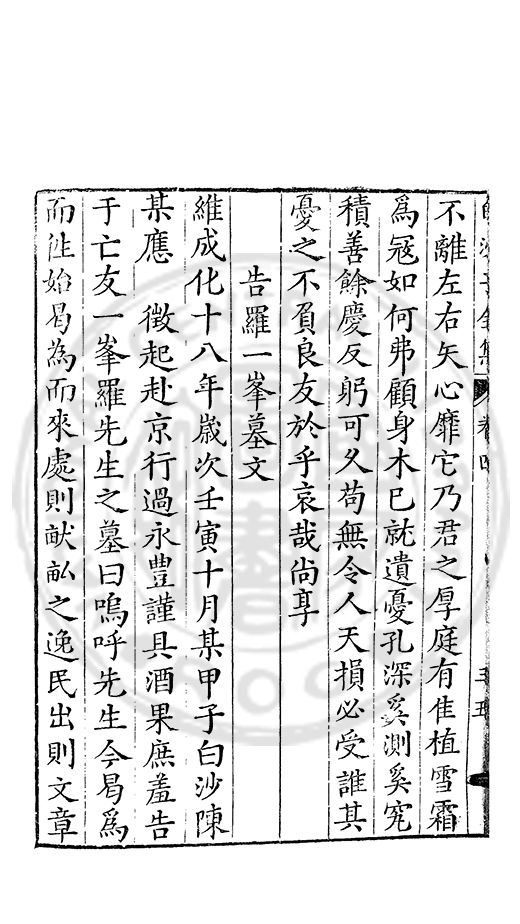 不離左右矢心靡它乃君之厚庭有佳植雪霜
爲冦如何弗顧身木已就遺憂孔深奚測奚究
積善餘慶反躬可久苟無令人天損必受誰其
憂之不負良友於乎哀哉尚享
告羅一峯墓文
維成化十八年歲次壬寅十月某甲子白沙陳
某應　徵起赴京行過永豊謹具酒果庶羞告
于亡友一峯羅先生之墓曰嗚呼先生今曷爲
而徃始曷為而來處則献畆之逸民出則文章